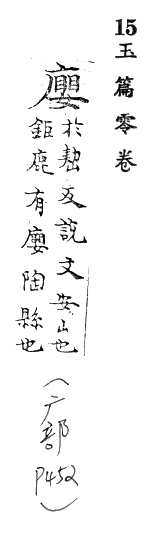 15 玉篇零卷
廮
於反說文安止也
鉅鹿有廮陶縣也
(广部
P452)